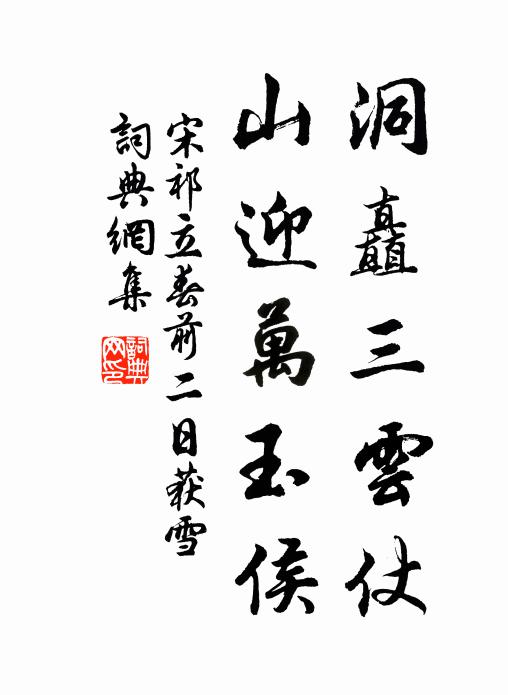 洞矗三雲仗
山迎萬玉侯
宋祁立春前二日获雪
詞典網集
詞典网印